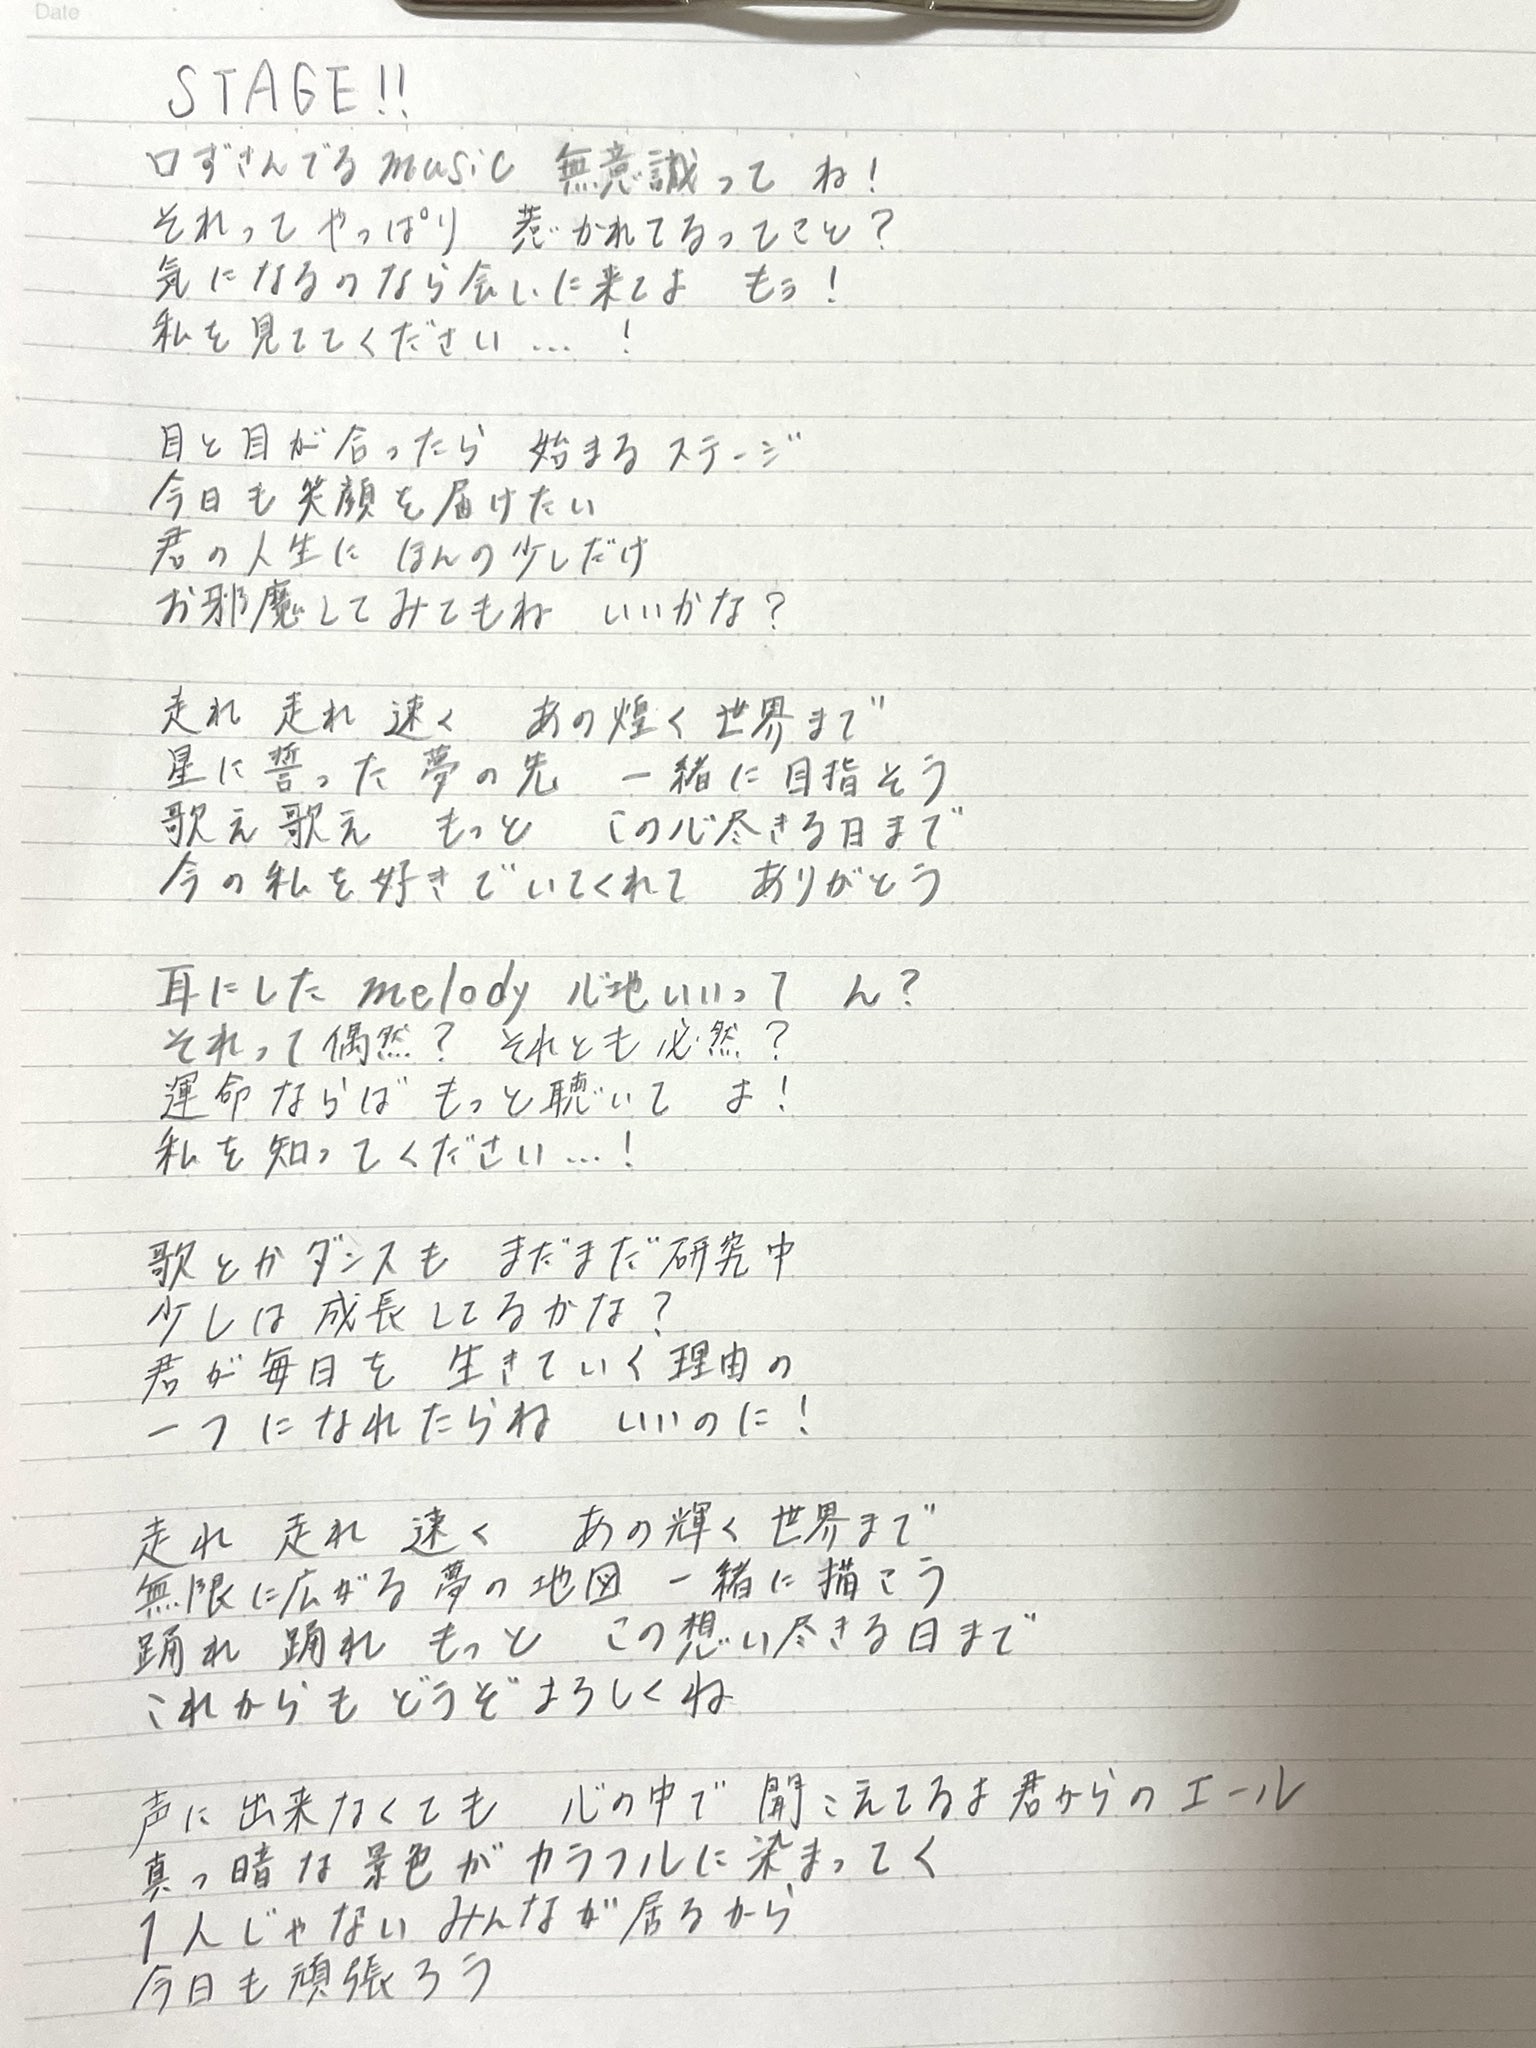 Date
STAGE!!
口ずさんでるmusic 無意識って ね!
それってやっぱり 惹かれてるってこと?
気になるのなら会いに来てよ もぅ!
私を見ててください…!
目と目が合ったら 始まるステージ
今日も笑顔を届けたい
君の人生に ほんの少しだけ
お邪魔してみてもね いいかな?
走れ 走れ 速く あの煌く世界まで
星に誓った夢の先 一緒に目指そう
歌え歌え もっと この心尽きる日まで
今の私を好きでいてくれて ありがとう
耳にしたmelody 心地いいって ん?
それって偶然? それとも必然?
運命ならば もっと聴いて よ!
私を知ってください…!
歌とかダンスも まだまだ研究中
少しは成長してるかな?
君が毎日を 生きていく理由の
一つになれたらね いいのに!
走れ 走れ 速く あの輝く世界まで
無限に広がる夢の地図 一緒に描こう
踊れ 踊れ もっと この想い尽きる日まで
これからもどうぞよろしくね
声に出来なくても 心の中で 聞こえてるよ君からのエール
真っ暗な景色がカラフルに染まってく
1人じゃない みんなが居るから
今日も頑張ろう